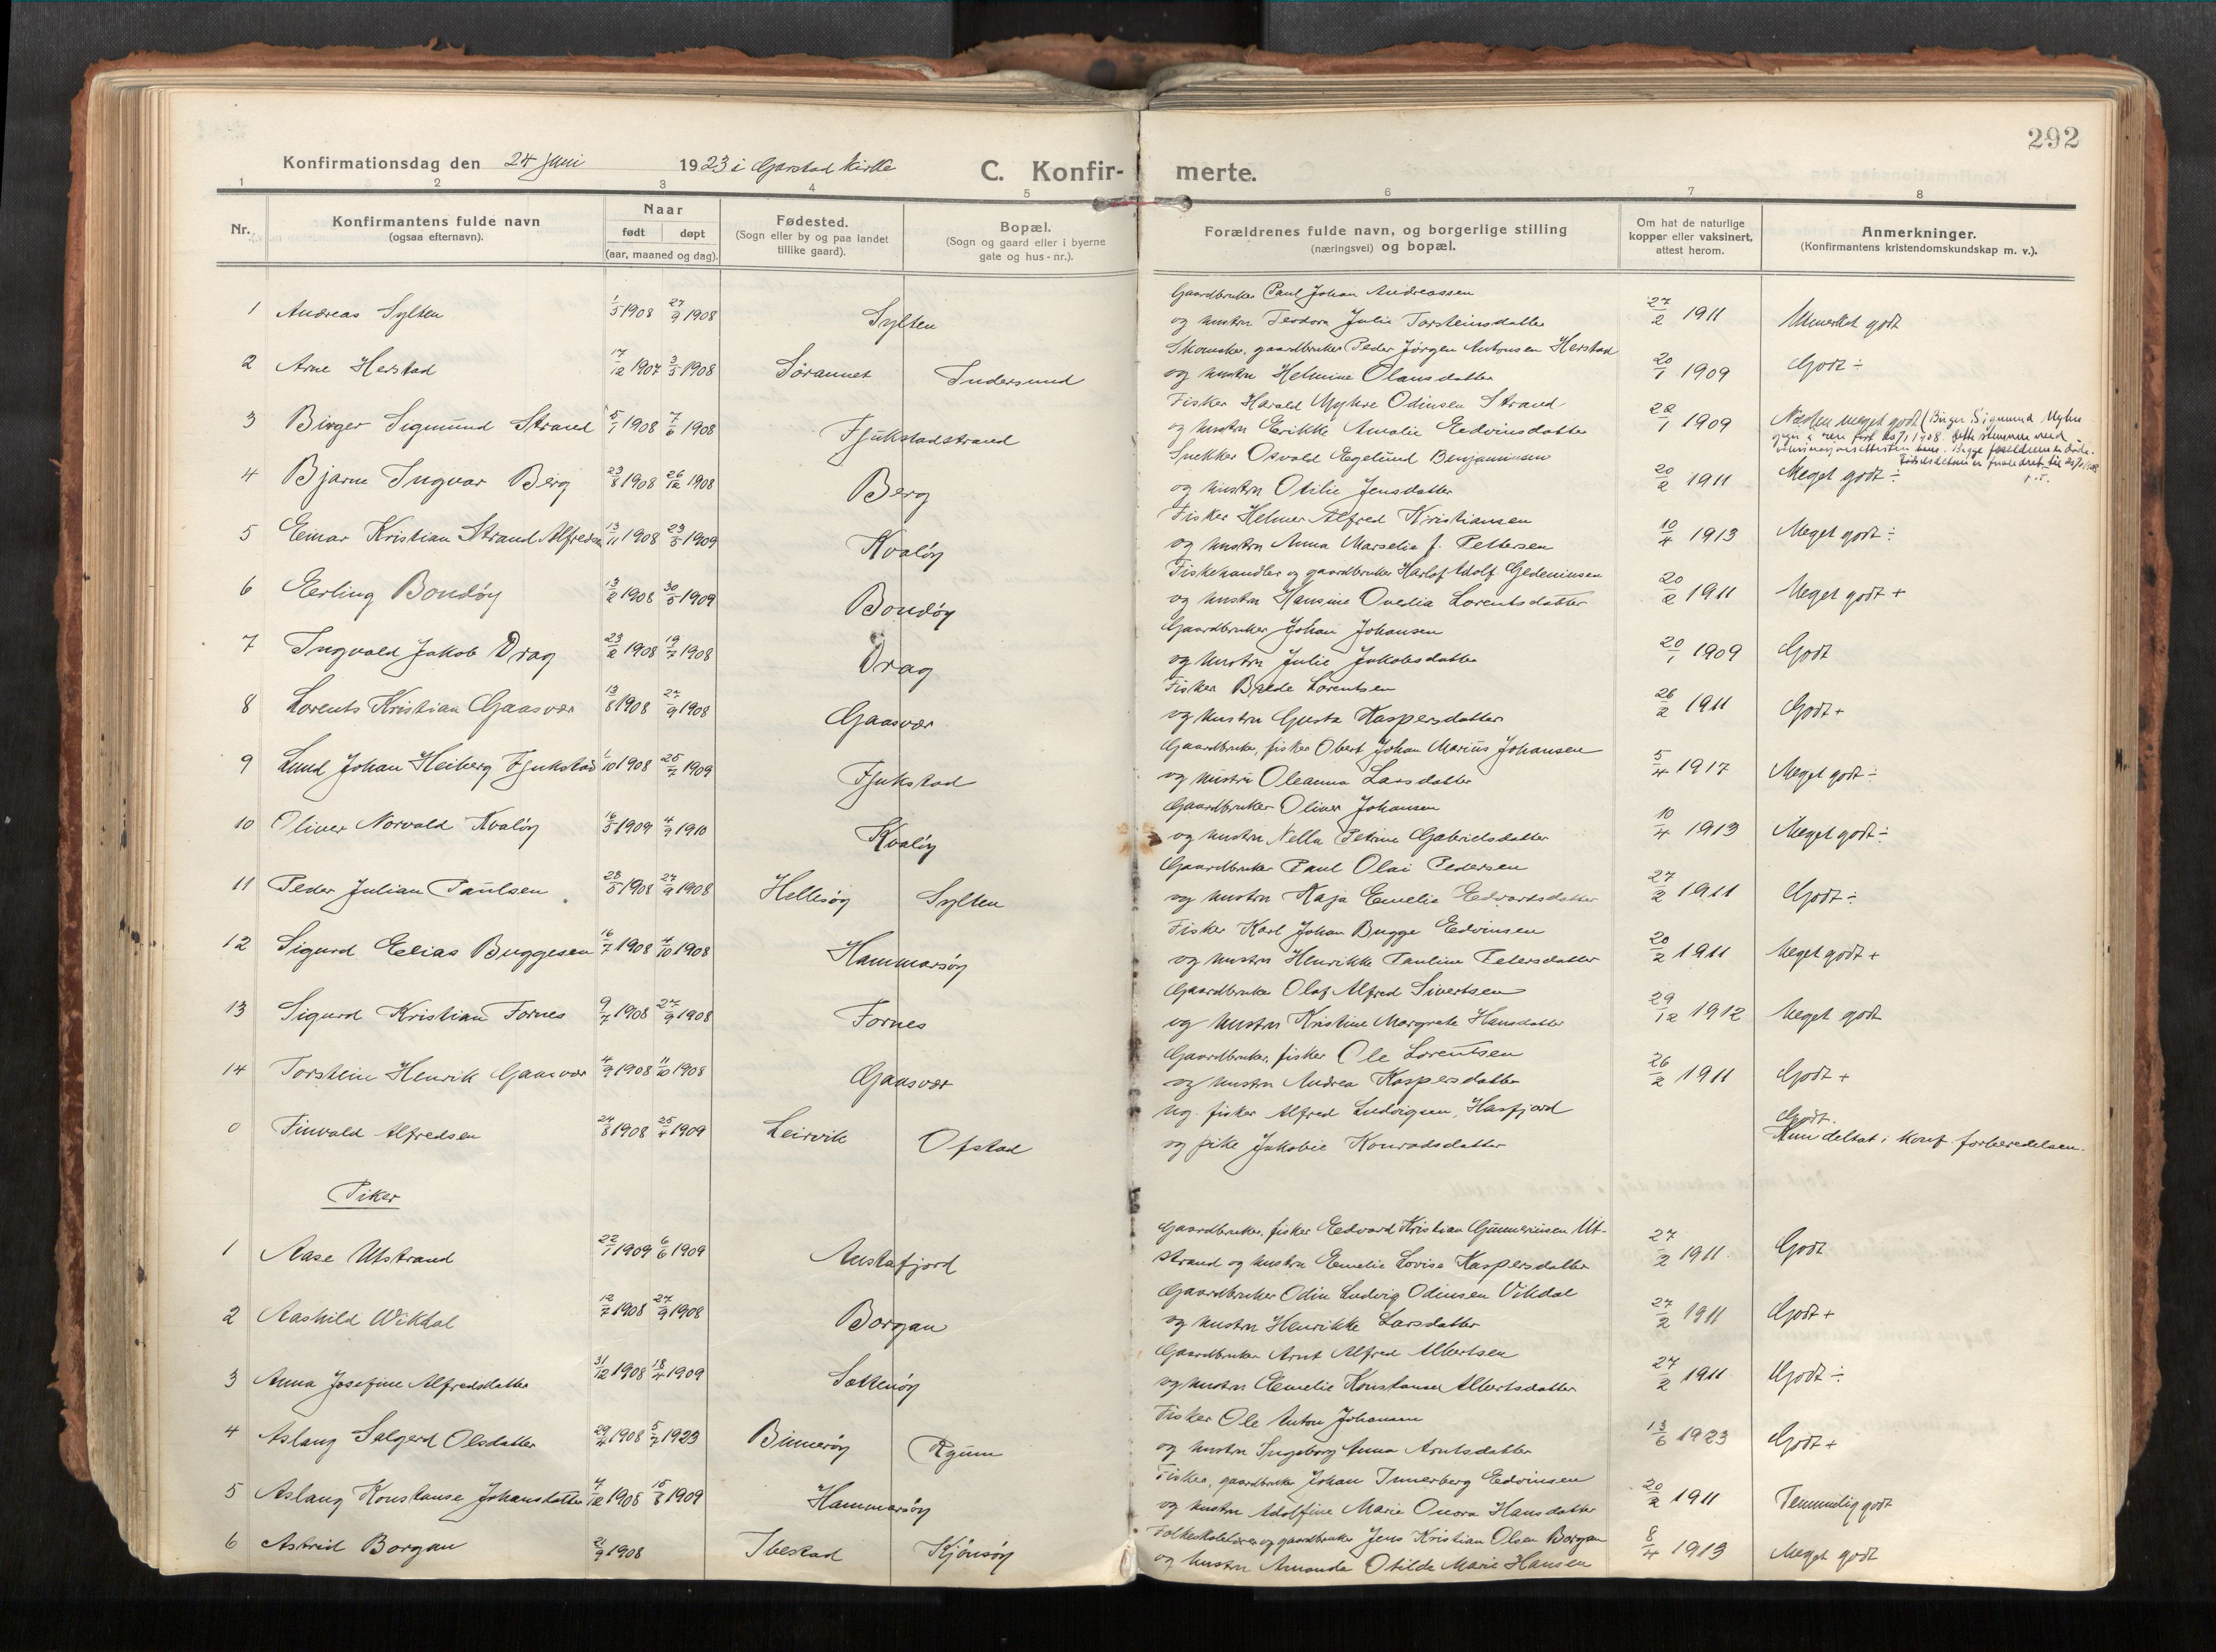 292
Konfirmationsdag den 24 juni 1923 i Garstad kirke
C. Konfir- merte.
1 2 3 4 5 6 7 8
Nr.
Konfirmantens fulde navn (ogsaa efternavn).
Naar født døpt (aar, maaned og dag).
Fødested. (Sogn eller by og paa landet tillike gaard).
Bopæl. (Sogn og gaard eller i byerne gate og hus-nr.).
Forældrenes fulde navn, og borgerlige stilling (næringsvei) og bopæl.
Om hat de naturlige kopper eller vaksinert, attest herom.
Anmerkninger. (Konfirmantens kristendomskundskap m. v.).
Gaardbruker Paul Johan Andreassen
1 Andreas Sylten 1/5 1908 27/9 1908 Sylten og hustru Teodora Julie Torsteinsdatter 27/2 1911 Utmerket godt
Skomaker, gaardbruker Peder Jørgen Antonsen Herstad
2 Arne Herstad 17/12 1907 3/5 1908 Sørannet Indersund og hustru Helmine Olausdatter 20/1 1909 Godt ÷
Fisker Harald Myhre Odinsen Strand
3 Birger Sigmund Strand 5/1 1908 7/6 1908 Fjukstadstrand og hustru Erikke Amalie Eedvinsdatter 22/1 1909 Næsten meget godt (Birger Sigmund Myhre
Snekker Osvald Egelund Benjaminsen
4 Bjarne Ingvar Berg 23/8 1908 26/12 1908 Berg og hustru Otilie Jensdatter 20/2 1911 Meget godt ÷
Fisker Helmer Alfred Kristiansen
5 Einar Kristian Strand Alfredsen 13/11 1908 23/5 1909 Kvaløy og hustru Anna Marselie f. Pettersen 10/4 1913 Meget godt ÷
Fiskehandler og gaardbruker Harlof Adolf Gedeninsen
6 Eerling Bondøy 13/2 1908 30/5 1909 Bondøy og hustru Hansine Ovedia Lorentsdatter 20/2 1911 Meget godt +
Gaardbruker Johan Johansen
7 Ingvald Jakob Drag 23/2 1908 19/7 1908 Drag og hustru Julie Jakobsdatter 20/1 1909 Godt
Fisker Brede Lorentsen
8 Lorents Kristian Gaasvær 13/8 1908 27/9 1908 Gaasvær og hustru Gusta Kaspersdatter 26/2 1911 Godt +
Gaardbruker, fisker Obert Johan Marius Johansen
9 Lund Johan Heiberg Fjukstad 1/10 1908 25/7 1909 Fjukstad og hustru Oleanna Larsdatter 5/4 1917 Meget godt ÷
Gaardbruker Oliver Johansen
10 Oliver Norvald Kvaløy 16/5 1909 4/9 1910 Kvaløy og hustru Nella Petrine Gabrielsdatter 10/4 1913 Meget godt ÷
Gaardbruker Paul Olai Pedersen
11 Peder Julian Paulsen 28/5 1908 27/9 1908 Hellesøy Sylten og hustru Kaja Eemelie Eedvardsdatter 27/2 1911 Godt ÷
Fisker Karl Johan Bugge Eedvinsen
12 Sigurd Eelias Buggesen 16/7 1908 4/10 1908 Hammarsøy og hustru Henrikke Pauline Petersdatter 20/2 1911 Meget godt +
Gaardbruker Olaf Alfred Sivertsen
13 Sigurd Kristian Fornes 9/7 1908 27/9 1908 Fornes og hustru Kristine Margrete Hansdatter 29/12 1912 Meget godt
Gaardbruker, fisker Ole Lorentsen
14 Torstein Henrik Gaasvær 4/9 1908 11/10 1908 Gaasvær og hustru Andrea Kaspersdatter 26/2 1911 Godt +
Ug. fisker Alfred Ludvigsen, Hasfjord Godt.
0 Finvald Alfredsen 24/8 1908 25/4 1909 Leirvik Ofstad og pike Jakobie Konradsdatter Kun deltat i konf. forberedelsen.
Piker
Gaardbruker, fisker Eedvard Kristian Gunneriusen Ut-
1 Aase Utstrand 22/1 1909 6/6 1909 Austafjord strand og hustru Eemelie Lovise Kaspersdatter 27/2 1911 Godt
Gaardbruker Odin Ludvig Odinsen Vikdal
2 Aashild Wikdal 12/7 1908 27/9 1908 Borgan og hustru Henrikke Larsdatter 27/2 1911 Godt +
Gaardbruker Arnt Alfred Albertsen
3 Anna Josefine Alfredsdatter 31/12 1908 18/4 1909 Sættenøy og hustru Eemelie Konstanse Albertsdatter 27/2 1911 Godt ÷
Fisker Ole Anton Johansen
4 Aslaug Salgerd Olsdatter 29/4 1908 5/7 1923 Binnerøy Ryum og hustru Ingeborg Anna Arntsdatter 13/6 1923 Godt +
Fisker, gaardbruker Johan Innerberg Eedvinsen
5 Aslaug Konstanse Johansdatter 4/12 1908 15/8 1909 Hammarsøy og hustru Adolfine Marie Onora Hansdatter 20/2 1911 Temmelig godt
Folkeskolelærer og gaardbruker Jens Kristian Olsen Borgan
6 Astrid Borgan 2/9 1908 Ibestad Kjønsøy og hustru Amanda Otilde Marie Hansen 8/4 1913 Meget godt